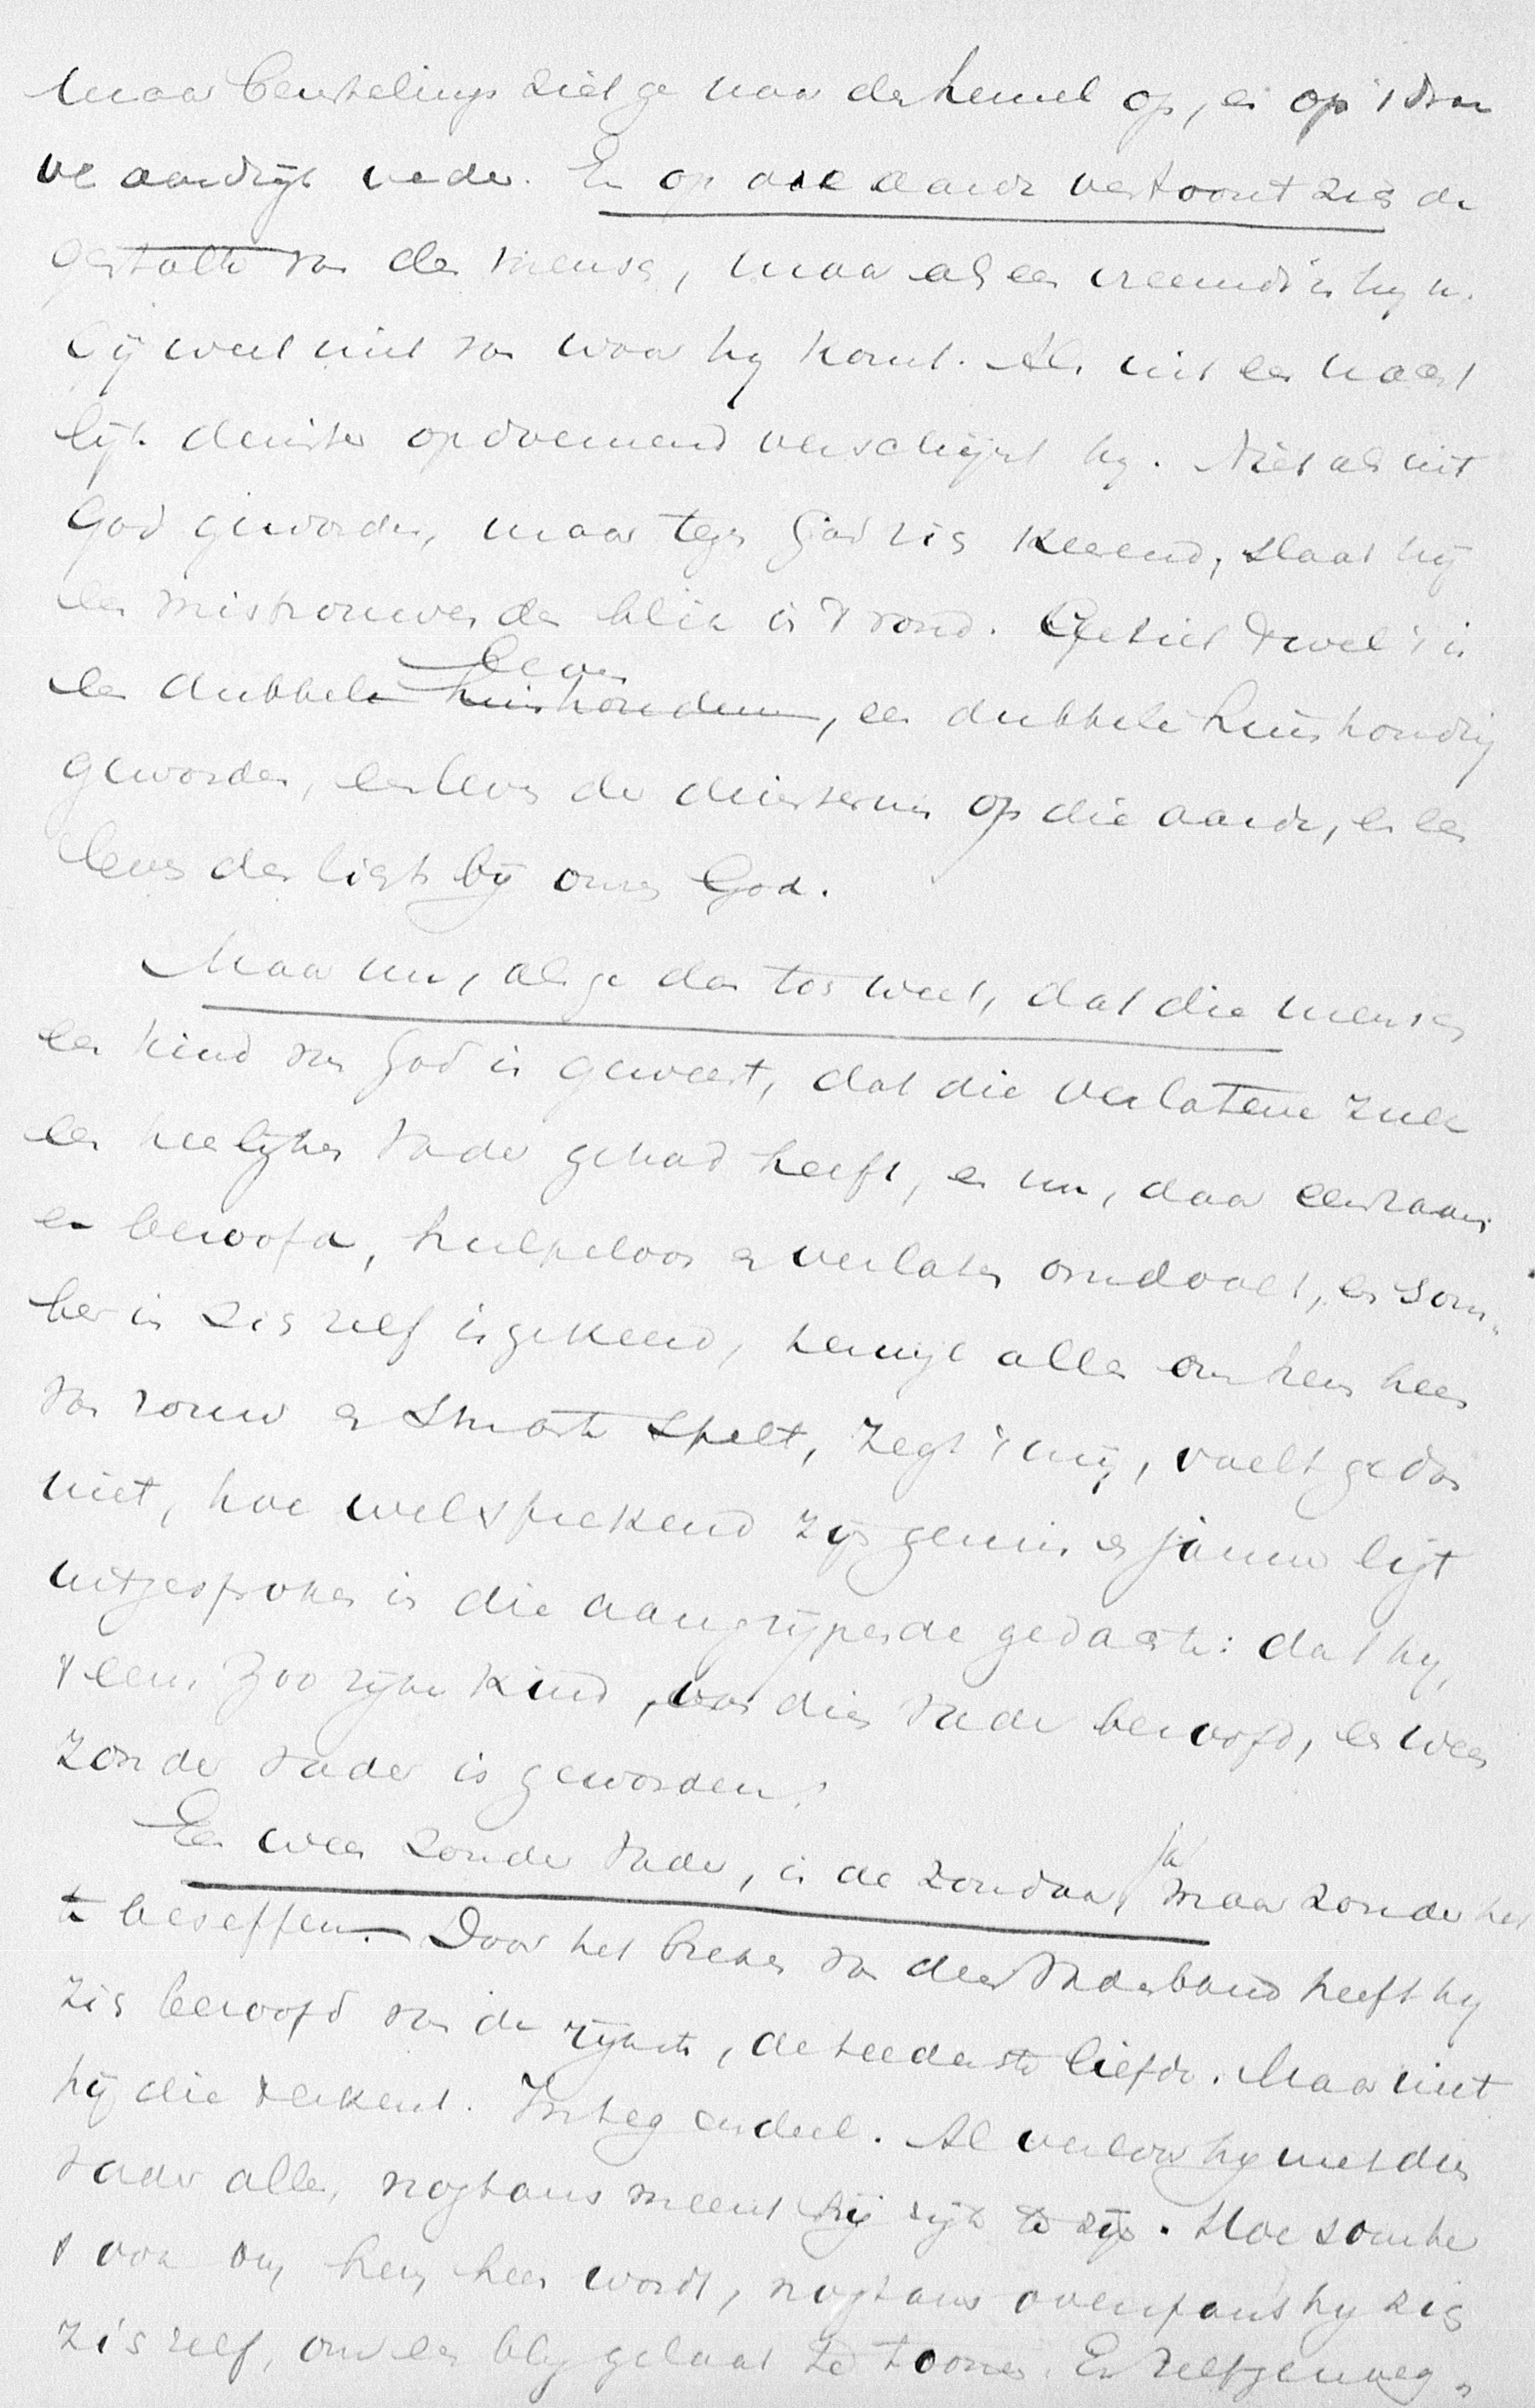 maar beurtelings ziet ge naar den hemel op, en op 't dro
ve aardrijk neder. En op die aarde vertoont zich de
gestalte van den mensch, maar als een vreemd is hij u.
Gij weet niet van waar hij komt. Als uit een nacht
lijk duister opdoemend verschijnt hij. Niet als uit
God geworden, maar tegen God zich keerend, slaat hij
een mistrouwenden blik in 't rond. Ge ziet 't wel 't is
een dubbel leven, een dubbele huishouding
geworden, een leven der duisternis op die aarde, en een
leven des lichts bij onzen God.
Maar nu, als ge dan toch weet, dat die mensch
een kind van God is geweest, dat die verlatene zulk
een heerlijken Vader gehad heeft, en nu, daar eenzaam
en beroofd, hulpeloos en verlaten omdoolt, en som-
ber in zich zelf is gekeerd, terwijl alles om hem heen
van rouw en smarte spelt, zegt 't mij, voelt ge dan
niet, hoe welsprekend zijn gemis en jammer ligt
uitgesproken in die aangrijpende gedachte: dat hij,
't eens zoo rijke kind, van dien Vader beroofd, en wees
zonder Vader is geworden!
Een wees zonder Vader, is de zondaar, ja maar zonder het
te beseffen. Door het breken van den Vaderband heeft hij
zich beroofd van de rijkste, de teederste liefde. Maar niet
hij die erkent. Integendeel. Al verloor hij met dien
Vader alles, nogtans meent hij rijk te zijn. Hoe somber
't ook om hem heen wordt, nogtans overspant hij zich
zich zelf, om een blij gelaat te toonen. En zelfgenoeg-